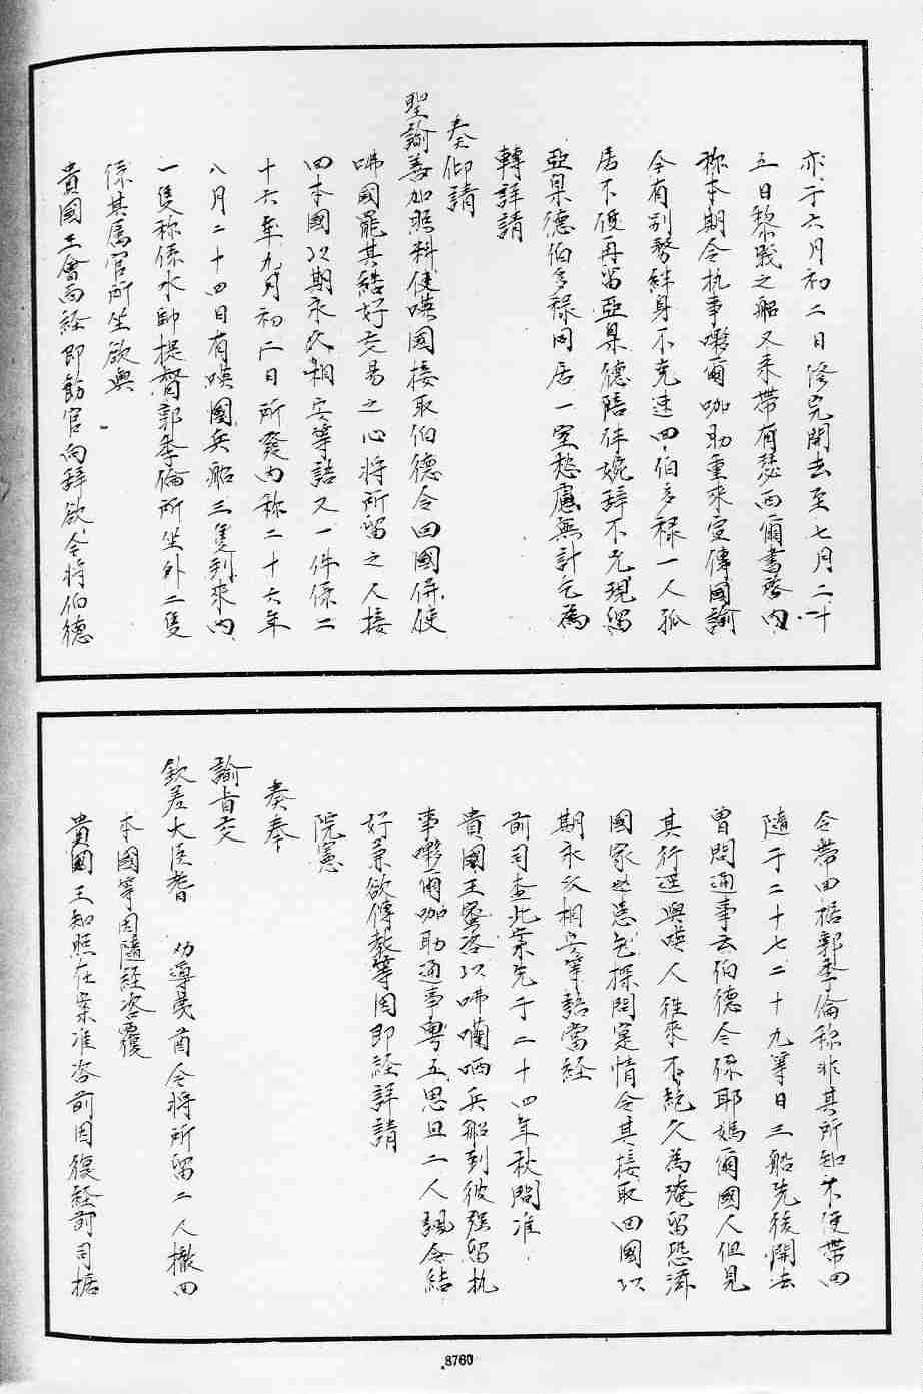 亦于六月初二日修完開去至七月二十
三日黎戰之船又来帶有瑟西爾書啓内
称本期令执事㘔爾咖助重来宣傳國諭
今有别務絆身不克速囬伯多禄一人孤
居不便再留亞臬德陪伴婉辞不允現留
亞臬德伯多禄同居一室愁慮無計乞為
轉詳請
奏仰請
聖諭善加照料使㗆國接取伯德令囬國併使
咈國罷其結好交易之心將所留之人接
囬本國以期永久相安等語又一件係二
十六年九月初六日所發内称二十六年
八月二十四日有㗆國兵船三隻到來内
一隻称係水師提督郭季倫所坐外二隻
係其属官所坐欲與
貴國王會面経即飭官向辞欲令將伯德
令帶囬據郭季倫称非其所知不便帶囬
隨于二十七二十九等日三船先後開去
曾問通事云伯德令係耶媽爾國人但見
其行迹與㗆人往來不絶久為淹留恐滋
國家
期永久相安等語當経
前司查此案先于二十四年秋間准
貴國王密咨以咈囒哂兵船到彼强留执
事㘔爾咖助通事粤五思旦二人誘令結
好兼欲傳教等因即経詳請
院憲
奏奉
諭旨交
欽差大臣耆 劝導夷酋令將所留二人撤囬
本國等因隨経咨覆
貴國王知照在案准咨前因復経前司據
8760